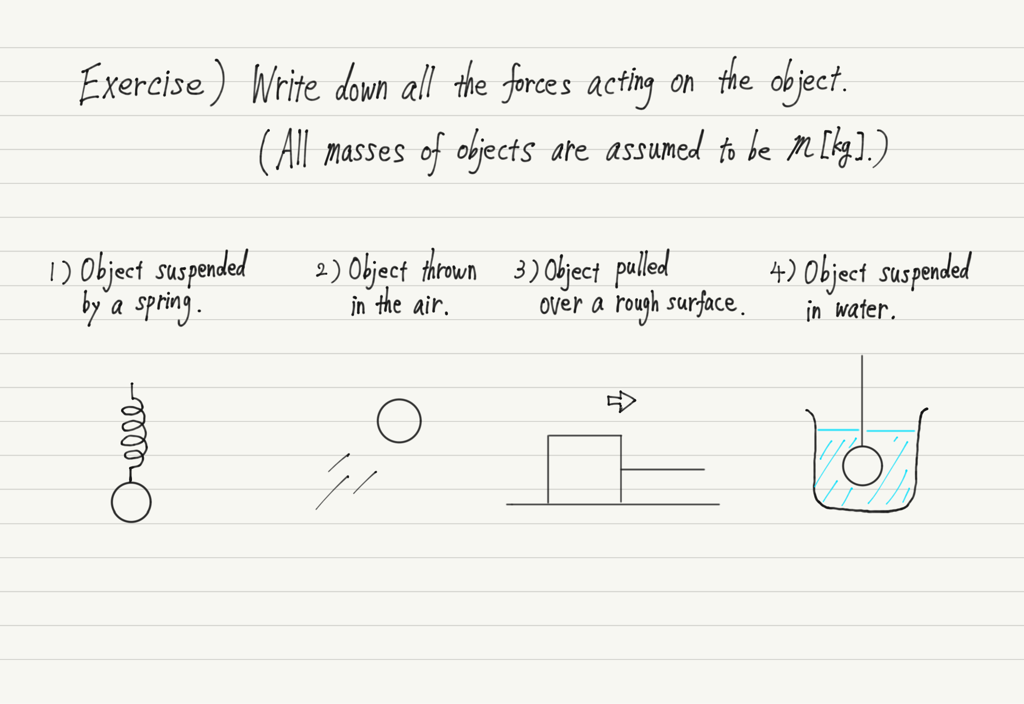 Exercise) Write down all the forces acting on the object.
(All masses of objects are assumed to be m [kg].)
1) Object suspended
by a spring.
2) Object thrown
in the air.
3) Object pulled
over a rough surface.
4) Object suspended
in water.